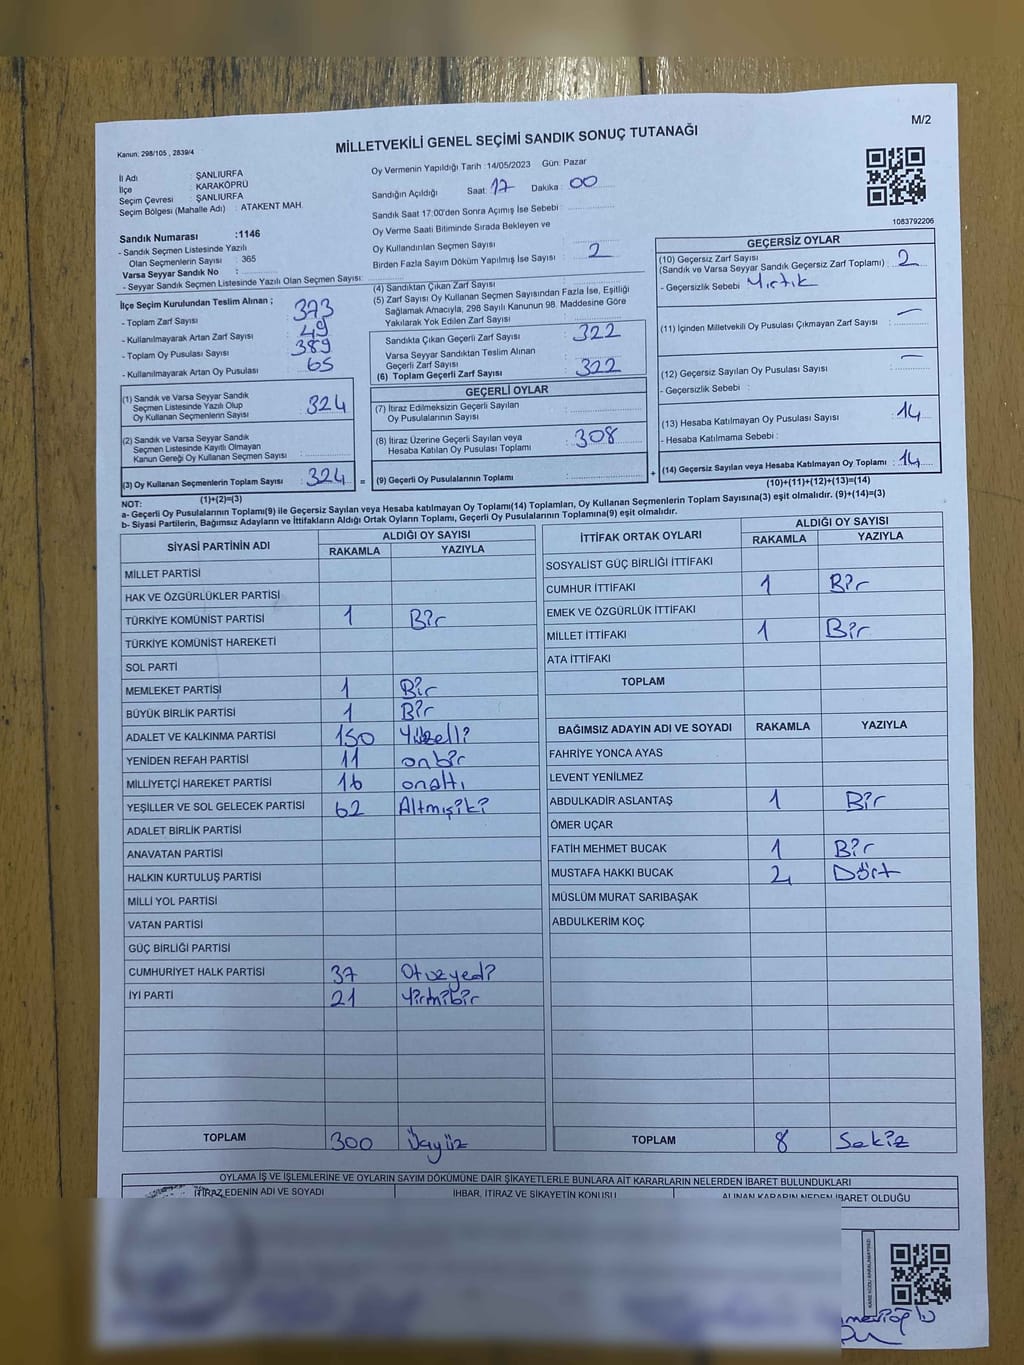 M/2
MİLLETVEKİLİ GENEL SEÇİMİ SANDIK SONUÇ TUTANAĞI
Kanun: 298/105 , 2839/4
İl Adı : ŞANLIURFA
İlçe : KARAKÖPRÜ
Seçim Çevresi : ŞANLIURFA
Seçim Bölgesi (Mahalle Adı) : ATAKENT MAH.
Sandık Numarası :1146
- Sandık Seçmen Listesinde Yazılı
Olan Seçmenlerin Sayısı : 365
Varsa Seyyar Sandık No :
- Seyyar Sandık Seçmen Listesinde Yazılı Olan Seçmen Sayısı:
İlçe Seçim Kurulundan Teslim Alınan ;
- Toplam Zarf Sayısı : 373
- Kullanılmayarak Artan Zarf Sayısı : 49
- Toplam Oy Pusulası Sayısı : 389
- Kullanılmayarak Artan Oy Pusulası : 65
(1) Sandık ve Varsa Seyyar Sandık
Seçmen Listesinde Yazılı Olup
Oy Kullanan Seçmenlerin Sayısı : 324
(2) Sandık ve Varsa Seyyar Sandık
Seçmen Listesinde Kayıtlı Olmayan
Kanun Gereği Oy Kullanan Seçmen Sayısı :
(3) Oy Kullanan Seçmenlerin Toplam Sayısı : 324 =
(1)+(2)=(3)
Oy Vermenin Yapıldığı Tarih :14/05/2023 Gün: Pazar
Sandığın Açıldığı Saat: 17 Dakika : 00
Sandık Saat 17:00'den Sonra Açımış İse Sebebi :
Oy Verme Saati Bitiminde Sırada Bekleyen ve
Oy Kullandırılan Seçmen Sayısı : 2
Birden Fazla Sayım Döküm Yapılmış İse Sayısı :
(4) Sandıktan Çıkan Zarf Sayısı :
(5) Zarf Sayısı Oy Kullanan Seçmen Sayısından Fazla İse, Eşitliği
Sağlamak Amacıyla, 298 Sayılı Kanunun 98. Maddesine Göre
Yakılarak Yok Edilen Zarf Sayısı :
Sandıkta Çıkan Geçerli Zarf Sayısı : 322
Varsa Seyyar Sandıktan Teslim Alınan
Geçerli Zarf Sayısı :
(6) Toplam Geçerli Zarf Sayısı : 322
GEÇERLİ OYLAR
(7) İtiraz Edilmeksizin Geçerli Sayılan
Oy Pusulalarının Sayısı :
(8) İtiraz Üzerine Geçerli Sayılan veya
Hesaba Katılan Oy Pusulası Toplamı : 308
(9) Geçerli Oy Pusulalarının Toplamı : +
1083792206
GEÇERSİZ OYLAR
(10) Geçersiz Zarf Sayısı
(Sandık ve Varsa Seyyar Sandık Geçersiz Zarf Toplamı) : 2
- Geçersizlik Sebebi : Yırtık
(11) İçinden Milletvekili Oy Pusulası Çıkmayan Zarf Sayısı : —
(12) Geçersiz Sayılan Oy Pusulası Sayısı : —
- Geçersizlik Sebebi :
(13) Hesaba Katılmayan Oy Pusulası Sayısı : 14
- Hesaba Katılmama Sebebi :
(14) Geçersiz Sayılan veya Hesaba Katılmayan Oy Toplamı : 14
(10)+(11)+(12)+(13)=(14)
NOT:
a- Geçerli Oy Pusulalarının Toplamı(9) ile Geçersiz Sayılan veya Hesaba katılmayan Oy Toplamı(14) Toplamları, Oy Kullanan Seçmenlerin Toplam Sayısına(3) eşit olmalıdır. (9)+(14)=(3)
b- Siyasi Partilerin, Bağımsız Adayların ve İttifakların Aldığı Ortak Oyların Toplamı, Geçerli Oy Pusulalarının Toplamına(9) eşit olmalıdır.
SİYASİ PARTİNİN ADI ALDIĞI OY SAYISI
RAKAMLA YAZIYLA
MİLLET PARTİSİ
HAK VE ÖZGÜRLÜKLER PARTİSİ
TÜRKİYE KOMÜNİST PARTİSİ 1 Bir
TÜRKİYE KOMÜNİST HAREKETİ
SOL PARTİ
MEMLEKET PARTİSİ 1 Bir
BÜYÜK BİRLİK PARTİSİ 1 Bir
ADALET VE KALKINMA PARTİSİ 150 Yüzelli
YENİDEN REFAH PARTİSİ 11 onbir
MİLLİYETÇİ HAREKET PARTİSİ 16 onaltı
YEŞİLLER VE SOL GELECEK PARTİSİ 62 Altmışiki
ADALET BİRLİK PARTİSİ
ANAVATAN PARTİSİ
HALKIN KURTULUŞ PARTİSİ
MİLLİ YOL PARTİSİ
VATAN PARTİSİ
GÜÇ BİRLİĞİ PARTİSİ
CUMHURİYET HALK PARTİSİ 37 Otuzyedi
İYİ PARTİ 21 Yirmibir
TOPLAM 300 Üçyüz
İTTİFAK ORTAK OYLARI ALDIĞI OY SAYISI
RAKAMLA YAZIYLA
SOSYALİST GÜÇ BİRLİĞİ İTTİFAKI
CUMHUR İTTİFAKI 1 Bir
EMEK VE ÖZGÜRLÜK İTTİFAKI
MİLLET İTTİFAKI 1 Bir
ATA İTTİFAKI
TOPLAM
BAĞIMSIZ ADAYIN ADI VE SOYADI RAKAMLA YAZIYLA
FAHRİYE YONCA AYAS
LEVENT YENİLMEZ
ABDULKADİR ASLANTAŞ 1 Bir
ÖMER UÇAR
FATİH MEHMET BUCAK 1 Bir
MUSTAFA HAKKI BUCAK 4 Dört
MÜSLÜM MURAT SARIBAŞAK
ABDULKERİM KOÇ
TOPLAM 8 Sekiz
OYLAMA İŞ VE İŞLEMLERİNE VE OYLARIN SAYIM DÖKÜMÜNE DAİR ŞİKAYETLERLE BUNLARA AİT KARARLARIN NELERDEN İBARET BULUNDUKLARI
İTİRAZ EDENİN ADI VE SOYADI İHBAR, İTİRAZ VE ŞİKAYETİN KONUSU ALINAN KARARIN NEDEN İBARET OLDUĞU